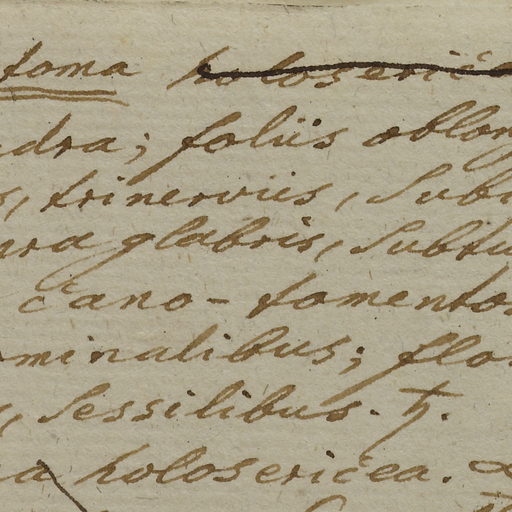 stoma holosericea
ndra; foliis oblong
s, trinerviis, Sub
ura glabris, Subtu
cano-tomento
minalibus; flo
s, Sessilibus. ♄.
na holosericea.